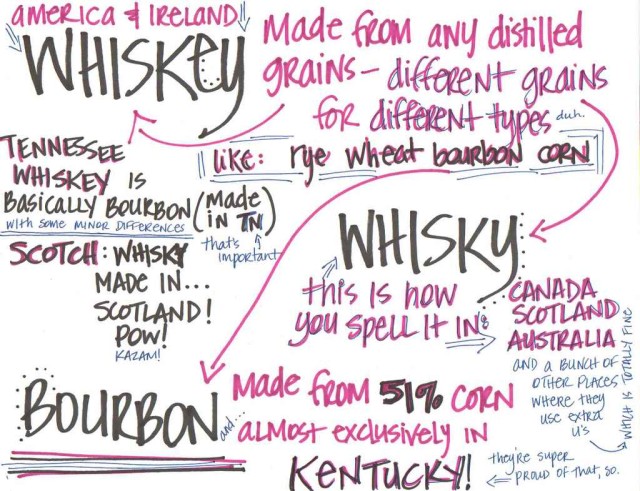 AMERICA & IRELAND
WHISKEY
Made from any distilled
grains - different grains
for different types
duh.
like: rye wheat bourbon CORN
TENNESSEE
WHISKEY IS
BASICALLY BOURBON (Made
in TN)
WITH SOME MINOR DIFFERENCES
that's
important
SCOTCH: WHISKY
MADE IN...
SCOTLAND!
POW!
KAZAM!
WHISKY
this is how
you spell it in:
CANADA
SCOTLAND
AUSTRALIA
AND A BUNCH OF
OTHER PLACES
WHERE THEY
USE EXTRA
U's
WHICH IS TOTALLY FINE
they're super
PROUD OF THAT, SO.
BOURBON
and...
Made from 51% CORN
almost exclusively in
KENTUCKY!